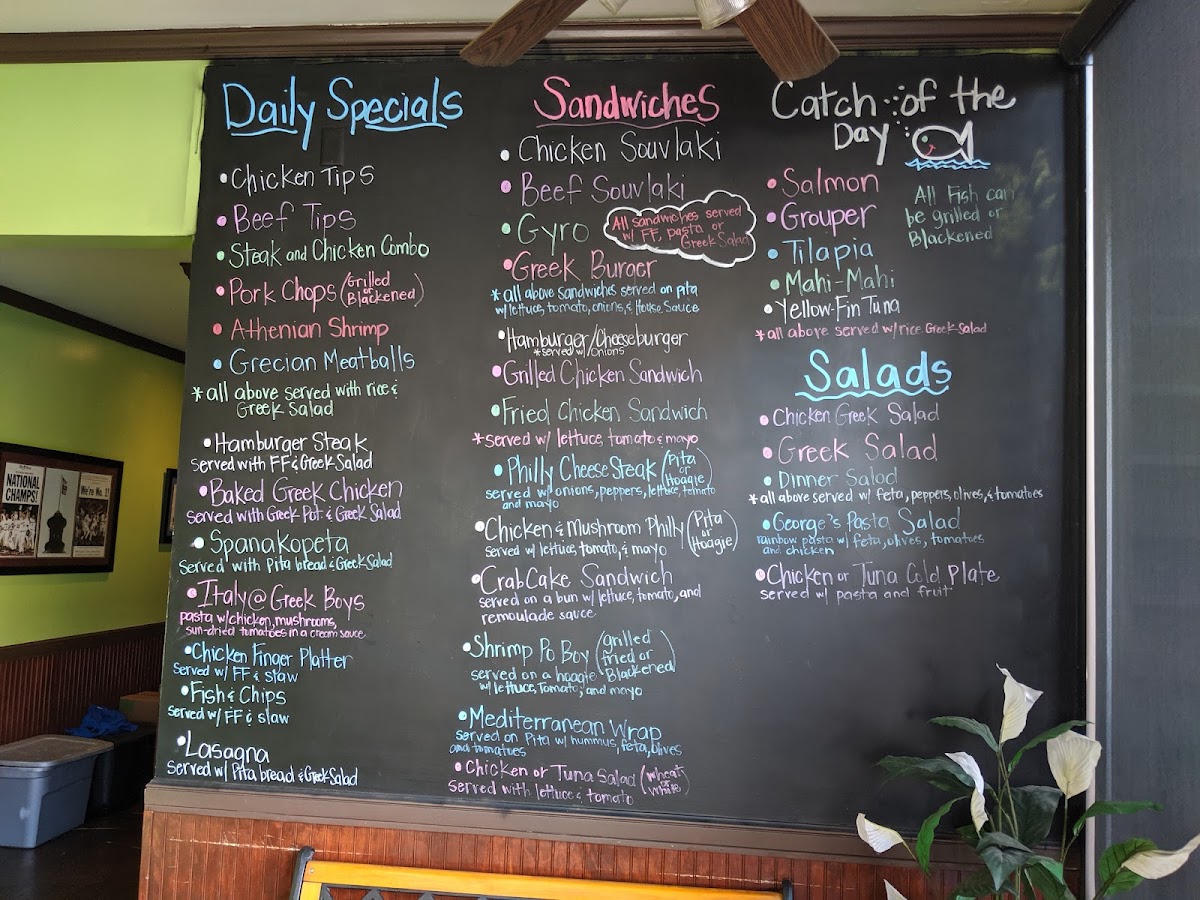 Daily Specials
• Chicken Tips
• Beef Tips
• Steak and Chicken Combo
• Pork Chops (Grilled or Blackened)
• Athenian Shrimp
• Grecian Meatballs
* all above served with rice &
Greek Salad
• Hamburger Steak
served with FF & Greek Salad
• Baked Greek Chicken
served with Greek Pot & Greek Salad
• Spanakopeta
served with Pita bread & Greek Salad
• Italy @ Greek Boys
pasta w/chicken, mushrooms,
sun-dried tomatoes in a cream sauce
• Chicken Finger Platter
served w/ FF & slaw
• Fish & Chips
served w/ FF & slaw
• Lasagna
served w/ Pita bread & Greek Salad
Sandwiches
• Chicken Souvlaki
• Beef Souvlaki
• Gyro
All sandwiches served
w/ FF, pasta or
Greek Salad
• Greek Burger
* all above sandwiches served on pita
w/ lettuce, tomato, onions, & House Sauce
• Hamburger/Cheeseburger
* served w/ onions
• Grilled Chicken Sandwich
• Fried Chicken Sandwich
* served w/ lettuce, tomato & mayo
• Philly Cheese Steak (Pita or Hoagie)
served w/ onions, peppers, lettuce, tomato
and mayo
• Chicken & Mushroom Philly (Pita or Hoagie)
served w/ lettuce, tomato, & mayo
• Crab Cake Sandwich
served on a bun w/ lettuce, tomato, and
remoulade sauce
• Shrimp Po Boy (grilled fried or Blackened)
served on a hoagie
w/ lettuce, Tomato, and mayo
• Mediterranean Wrap
served on Pita w/ hummus, feta, olives
and tomatoes
• Chicken or Tuna Salad (wheat or white)
served with lettuce & tomato
Catch of the
Day
• Salmon
• Grouper
• Tilapia
• Mahi-Mahi
• Yellow-Fin Tuna
All Fish can
be grilled or
Blackened
* all above served w/ rice Greek Salad
Salads
• Chicken Greek Salad
• Greek Salad
• Dinner Salad
* all above served w/ feta, peppers, olives, & tomatoes
• George's Pasta Salad
rainbow pasta w/ feta, olives, tomatoes
and chicken
• Chicken or Tuna Cold Plate
served w/ pasta and fruit
NATIONAL
CHAMPS!
We're No. 1!